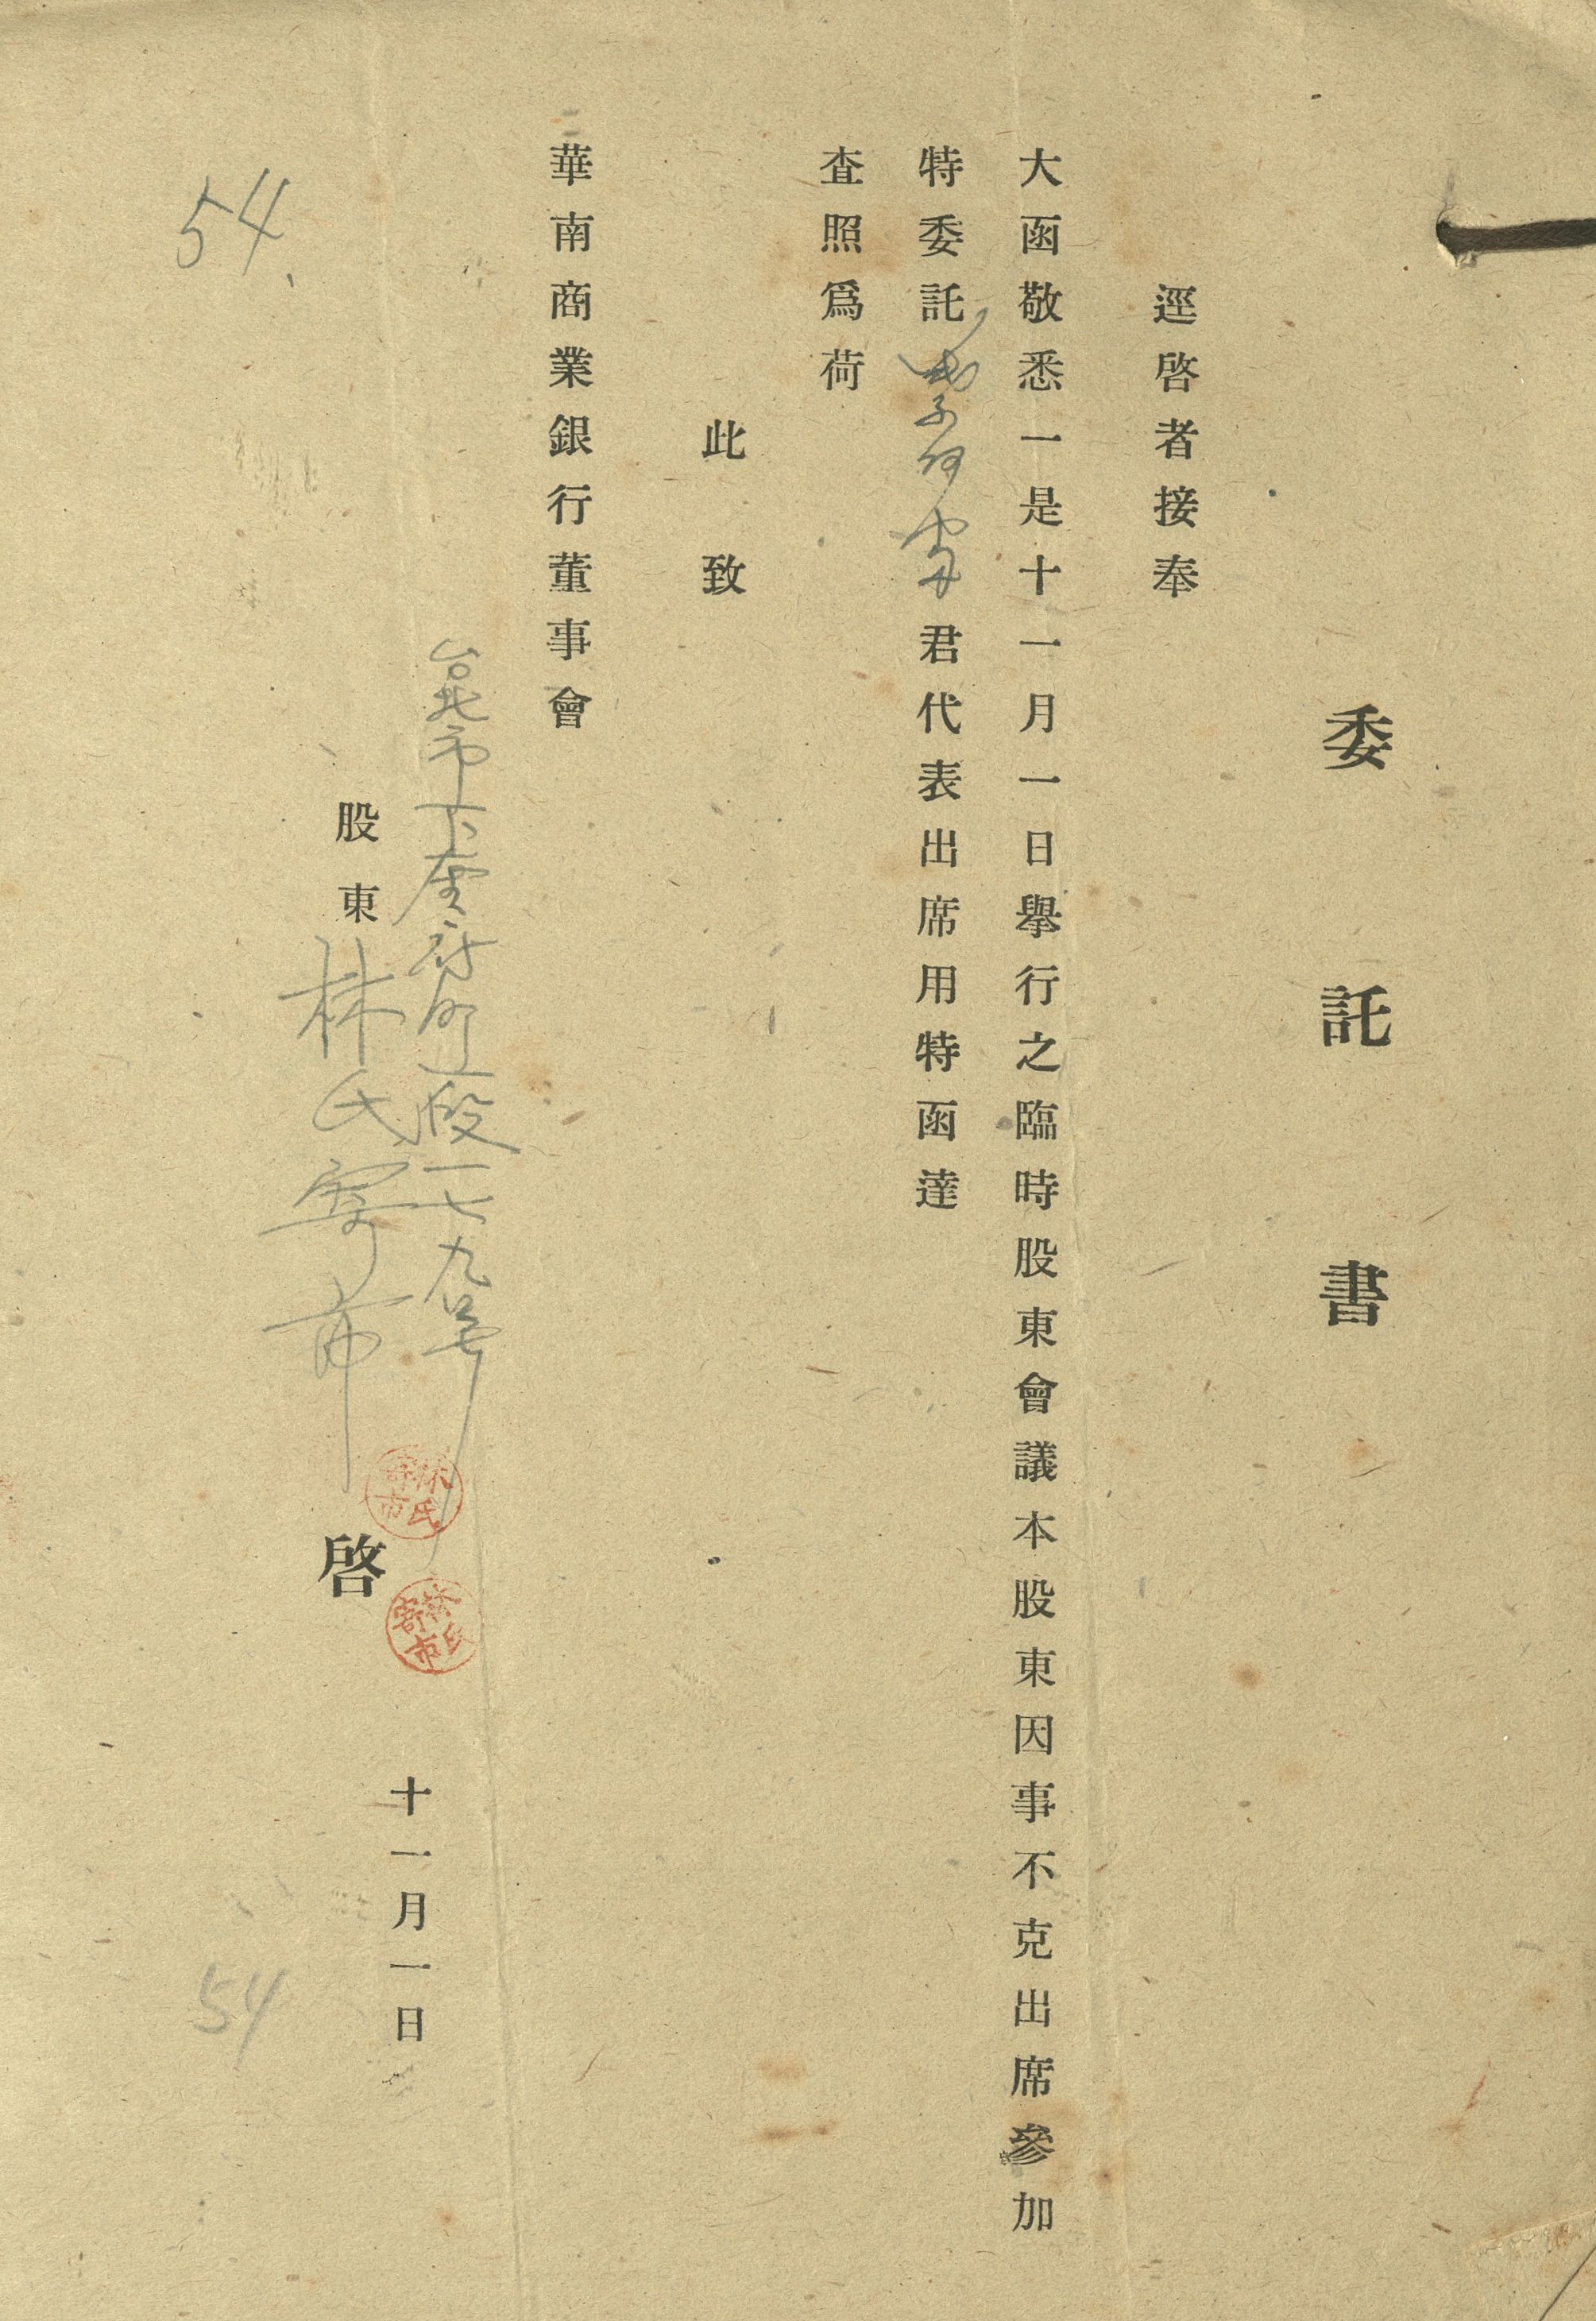 委託書
逕啓者接奉
大函敬悉一是十一月一日舉行之臨時股東會議本股東因事不克出席參加
特委託 君代表出席用特函達
查照爲荷
此致
華南商業銀行董事會
台北市下奎府町 段一七九号
股東 林氏寄市 啓
林氏寄市
林氏寄市
十一月一日
54.
54